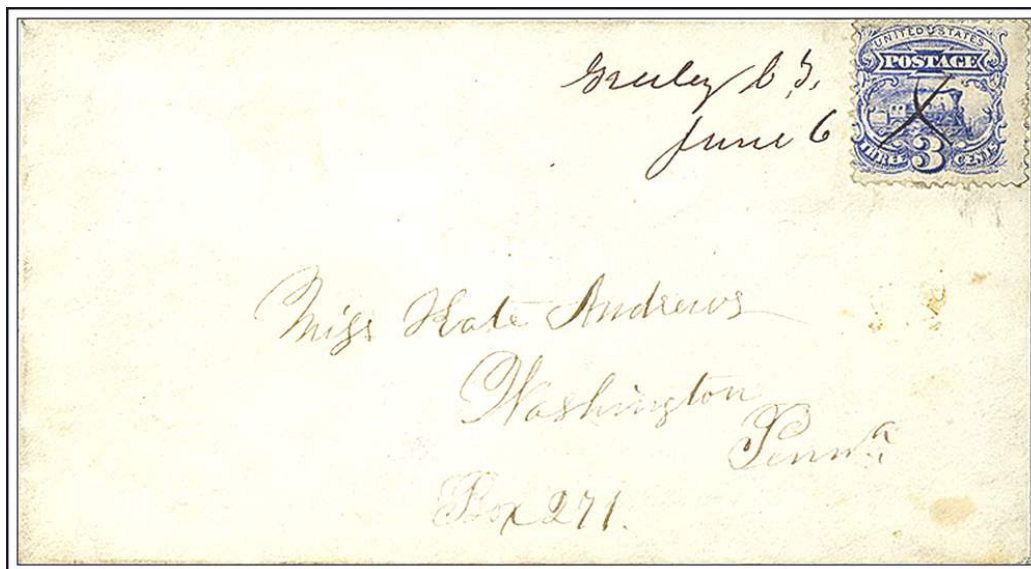 Greeley C.T.
June 6
UNITED STATES
POSTAGE
THREE 3 CENTS
Miss Kate Andrews
Washington
Penn.a
Box 271.